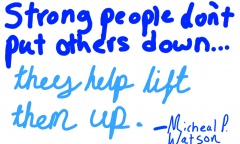 Strong people don't
put others down...
they help lift
them up.
-Micheal P.
Watson